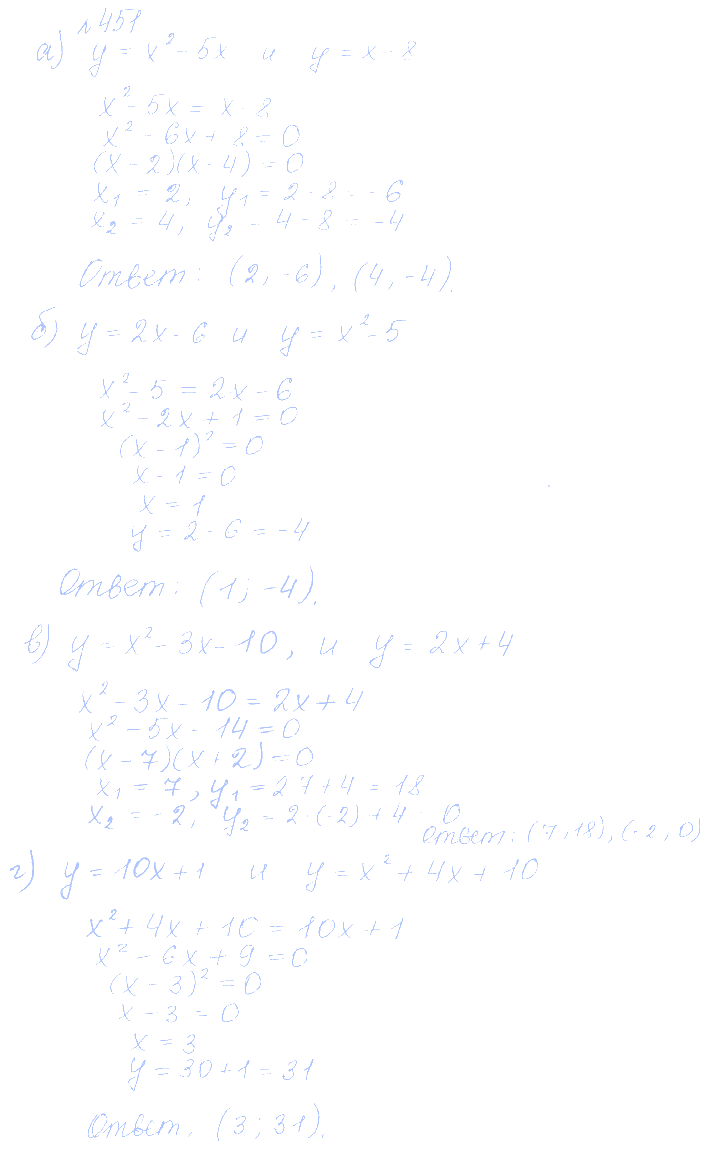 №451
а) y = x² - 5x и y = x - 8
x² - 5x = x - 8
x² - 6x + 8 = 0
(x - 2)(x - 4) = 0
x₁ = 2, y₁ = 2 - 8 = -6
x₂ = 4, y₂ = 4 - 8 = -4
Ответ: (2, -6), (4, -4).
б) y = 2x - 6 и y = x² - 5
x² - 5 = 2x - 6
x² - 2x + 1 = 0
(x - 1)² = 0
x - 1 = 0
x = 1
y = 2 - 6 = -4
Ответ: (1; -4).
в) y = x² - 3x - 10, и y = 2x + 4
x² - 3x - 10 = 2x + 4
x² - 5x - 14 = 0
(x - 7)(x + 2) = 0
x₁ = 7, y₁ = 2·7 + 4 = 18
x₂ = -2, y₂ = 2·(-2) + 4 = 0
Ответ: (7, 18), (-2, 0)
г) y = 10x + 1 и y = x² + 4x + 10
x² + 4x + 10 = 10x + 1
x² - 6x + 9 = 0
(x - 3)² = 0
x - 3 = 0
x = 3
y = 30 + 1 = 31
Ответ. (3; 31).